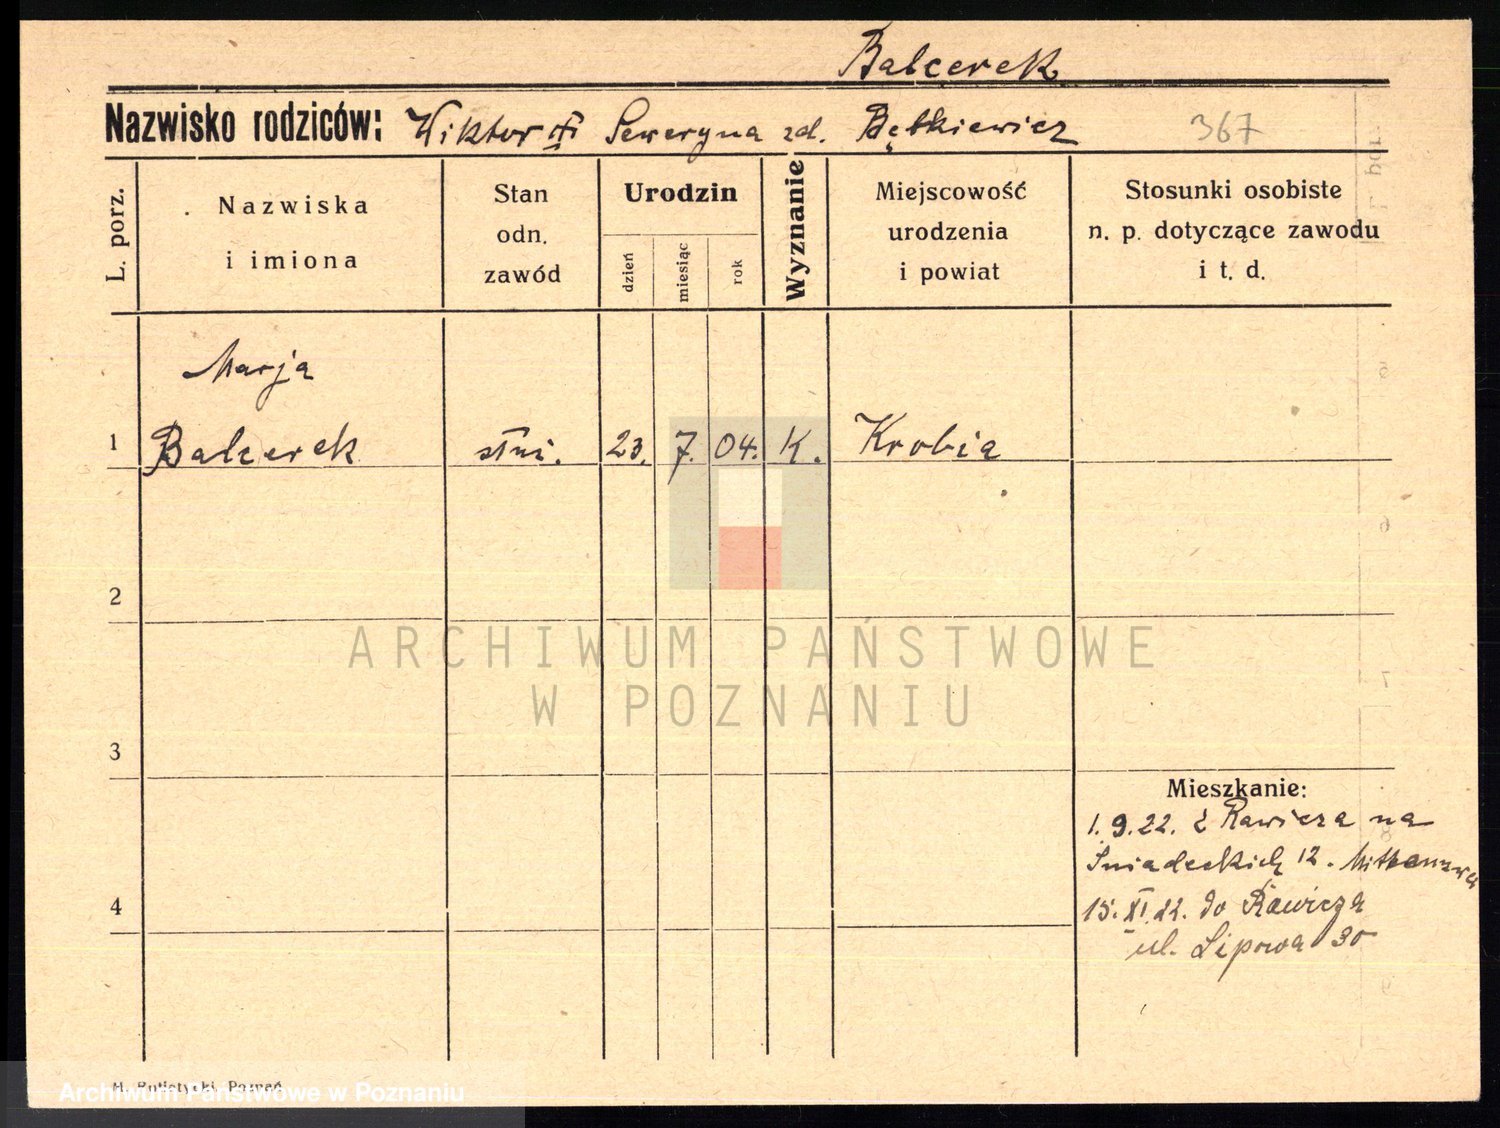 Balcerek
Nazwisko rodziców: Wiktor Seweryna zd. Bętkiewicz 367
L. porz.
Nazwiska
i imiona
Stan
odn.
zawód
Urodzin
dzień
miesiąc
rok
Wyznanie
Miejscowość
urodzenia
i powiat
Stosunki osobiste
n. p. dotyczące zawodu
i t. d.
Marja
1 Balcerek słui. 23. 7. 04. K. Krobia
2
ARCHIWUM PAŃSTWOWE
W POZNANIU
3
Mieszkanie:
1. 9. 22. z Rawicza na
Śniadeckich 12.
4
15. XI. 22. do Rawicza
ul. Lipowa 30
Archiwum Państwowe w Poznaniu